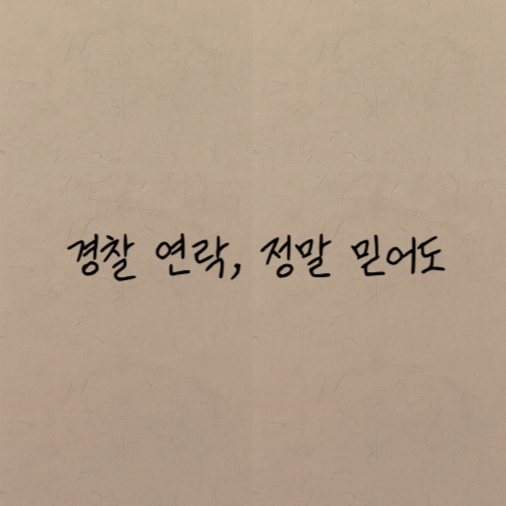 경찰 연락, 정말 믿어도